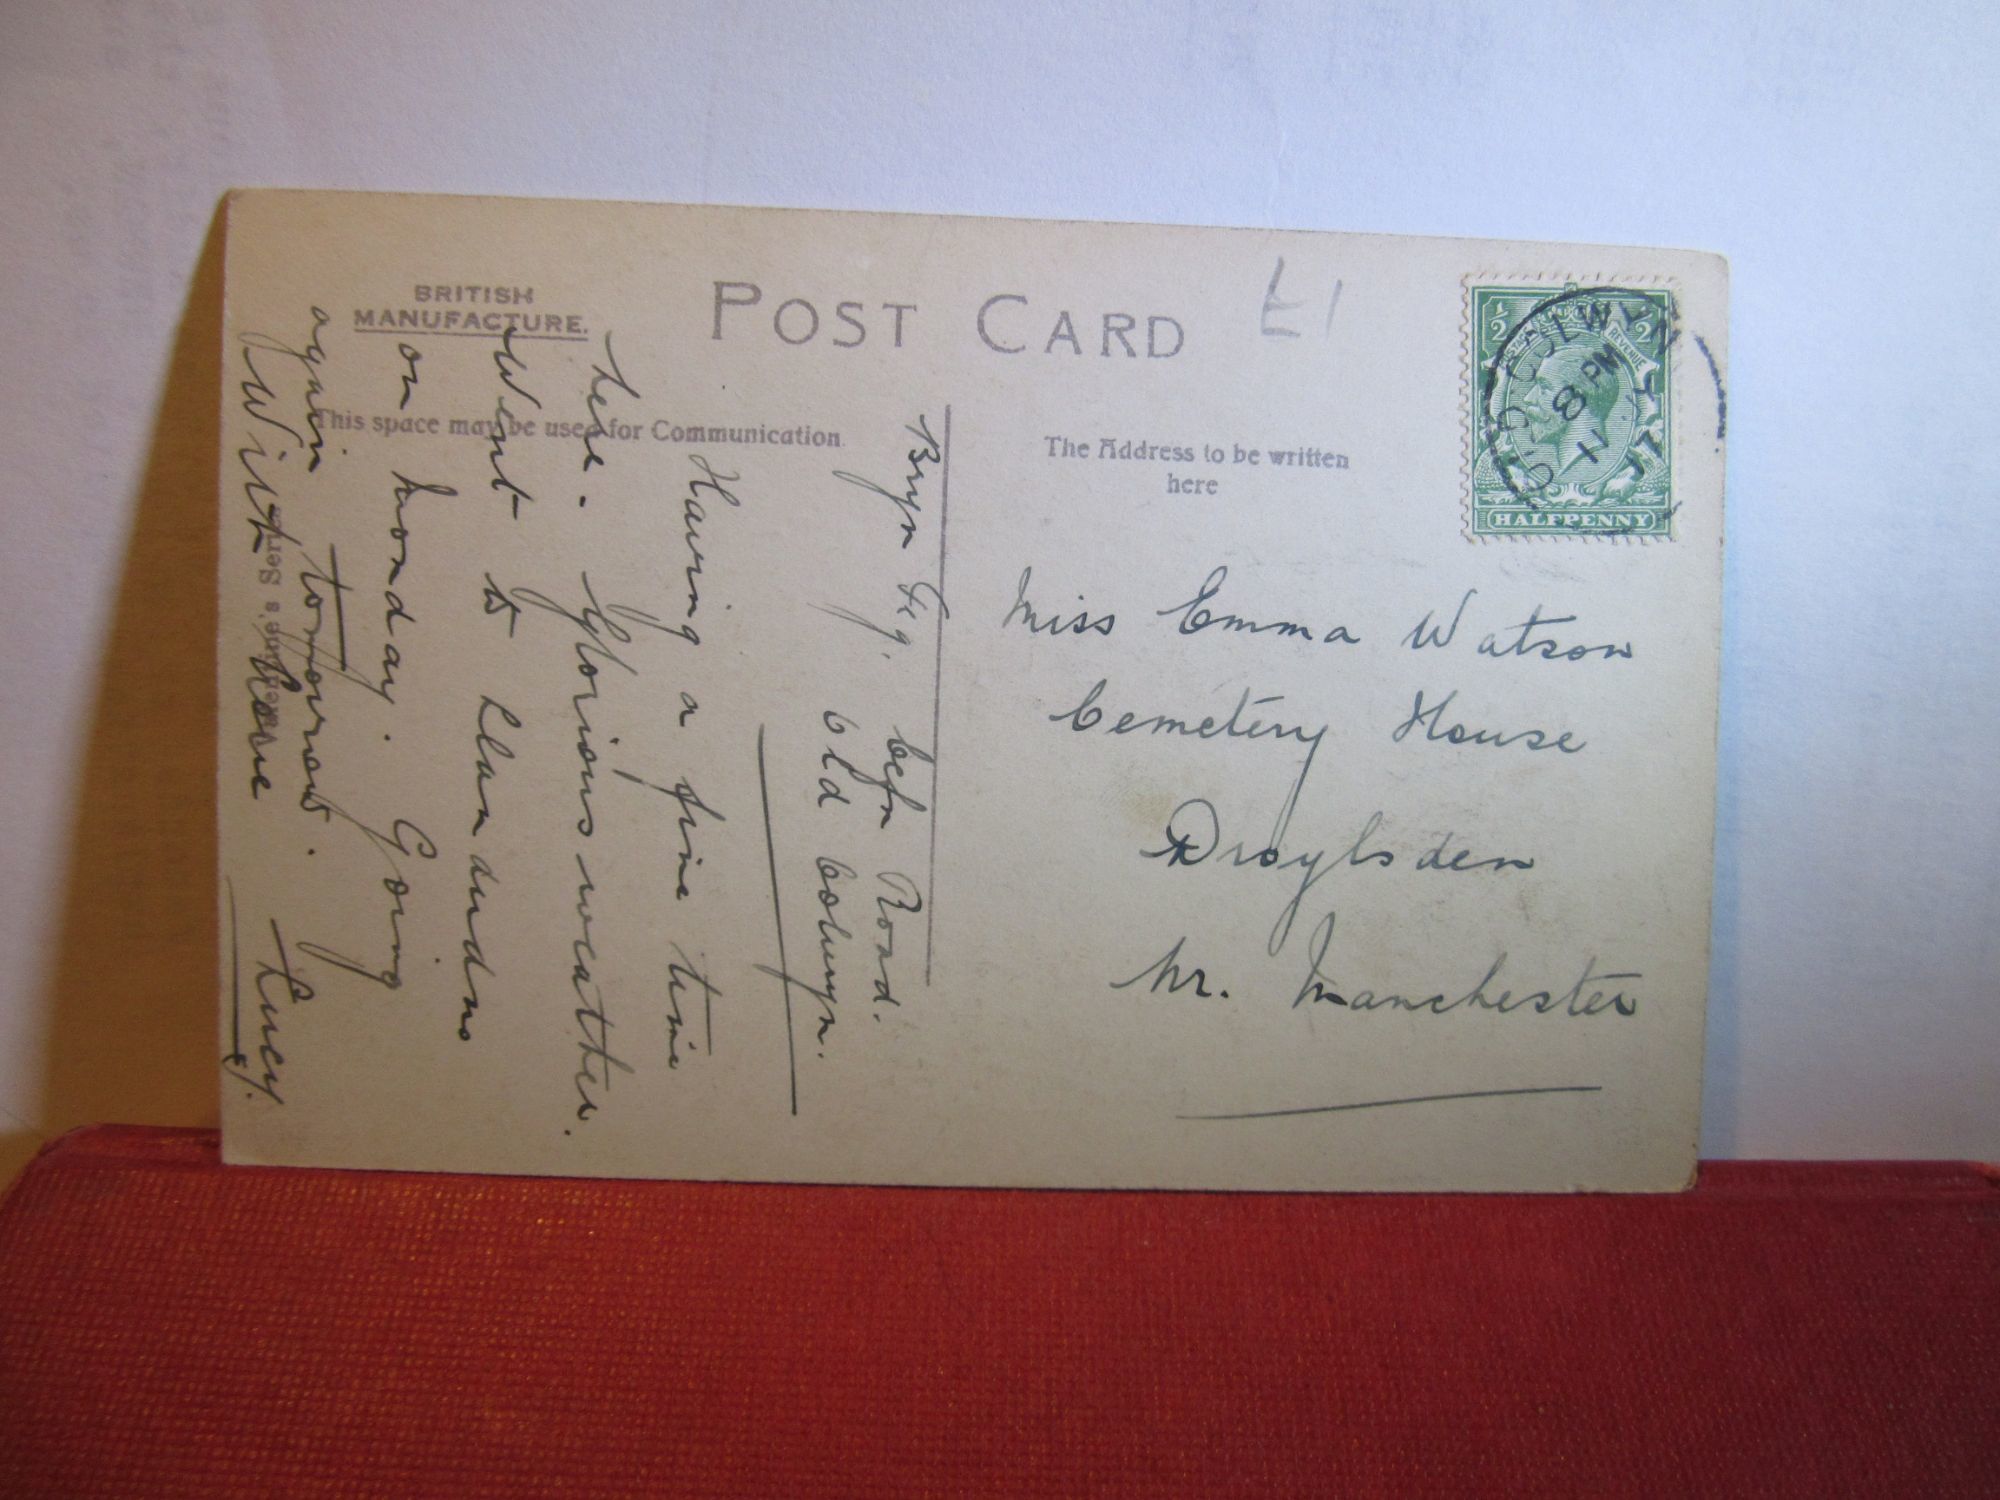 BRITISH
MANUFACTURE.
POST CARD
£1
This space may be used for Communication
The Address to be written
here
½ ½
POSTAGE REVENUE
HALFPENNY
OLD COLWYN
8 PM
11
Miss Emma Watson
Cemetery House
Droylsden
Nr. Manchester
Bryn Cefn Road.
Old Colwyn.
Having a fine time
here. Glorious weather.
Went to Llandudno
on Monday. Going
again tomorrow.
With Love Lucy.
Series